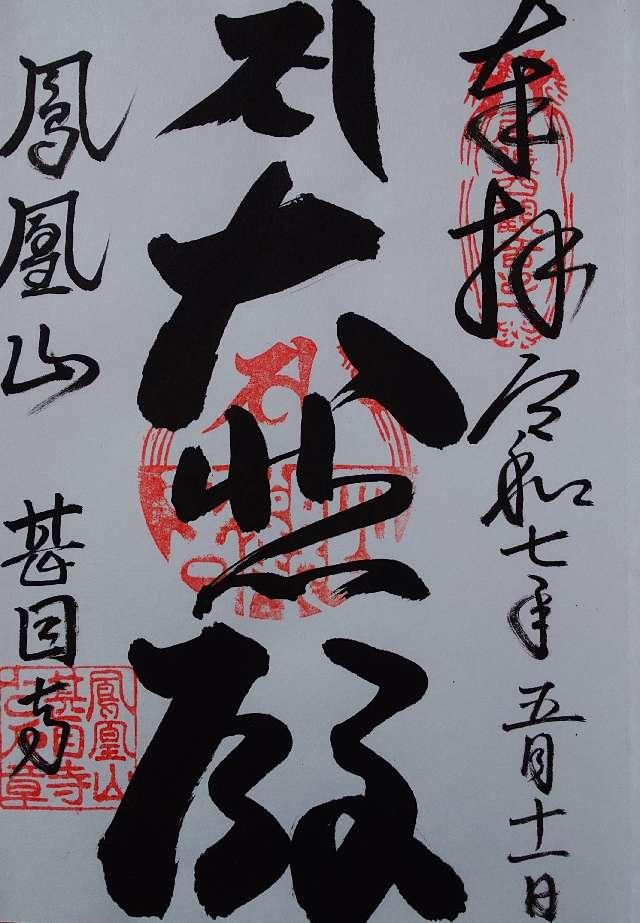 奉拝 令和七年五月十一日
大悲殿
鳳凰山 甚目寺
鳳凰山
甚目寺